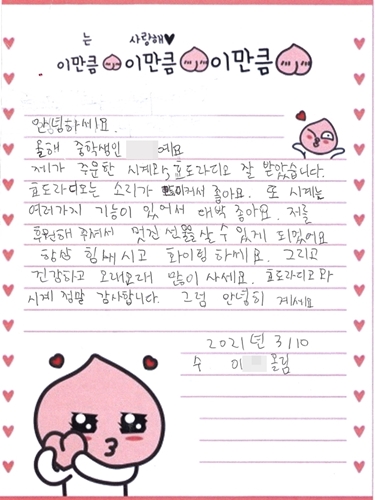 는 사랑해♥
이만큼 이만큼 이만큼
안녕하세요.
올해 중학생인 예요
제가 주문한 시계랑 효도라디오 잘 받았습니다.
효도라디오는 소리가 커서 좋아요. 또 시계는
여러가지 기능이 있어서 대박 좋아요. 저를
후원해 주셔서 멋진 선물을 살 수 있게 되었어요
항상 힘내시고 화이팅 하세요. 그리고
건강하고 오래오래 많이 사세요. 효도라디오와
시계 정말 감사합니다. 그럼 안녕히 계세요
2021년 3/10
이 올림